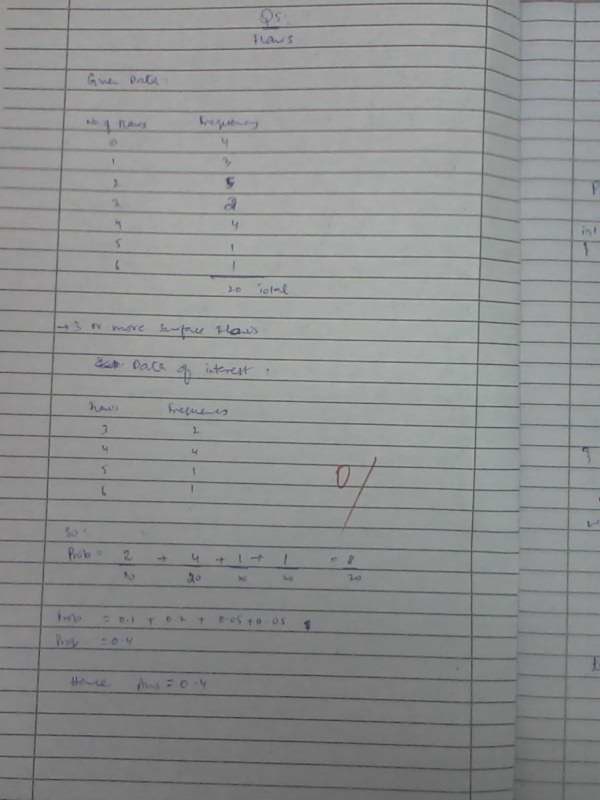 Q5.
Flaws
Given Data:
No of flaws Frequency
0 4
1 3
2 5
3 2
4 4
5 1
6 1
20 Total
→ 3 or more surface flaws
Data of interest.
Flaws Frequency
3 2
4 4
5 1
6 1
0/
So:
Prob = 2/20 + 4/20 + 1/20 + 1/20 = 8/20
Prob = 0.1 + 0.2 + 0.05 + 0.05
Prob = 0.4
Hence Ans = 0.4